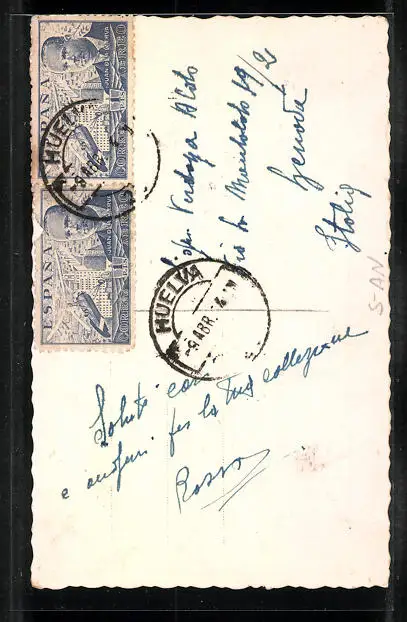 ESPAÑA
JUAN DE LA CIERVA
CORREO AEREO
ESPAÑA
JUAN DE LA CIERVA
CORREO AEREO
HUELVA
-9 ABR
HUELVA
-9 ABR
Verdoza Aldo
49/2
Genova
Italia
S-AN
Saluti cari
e auguri per la tua collezione
Rosso